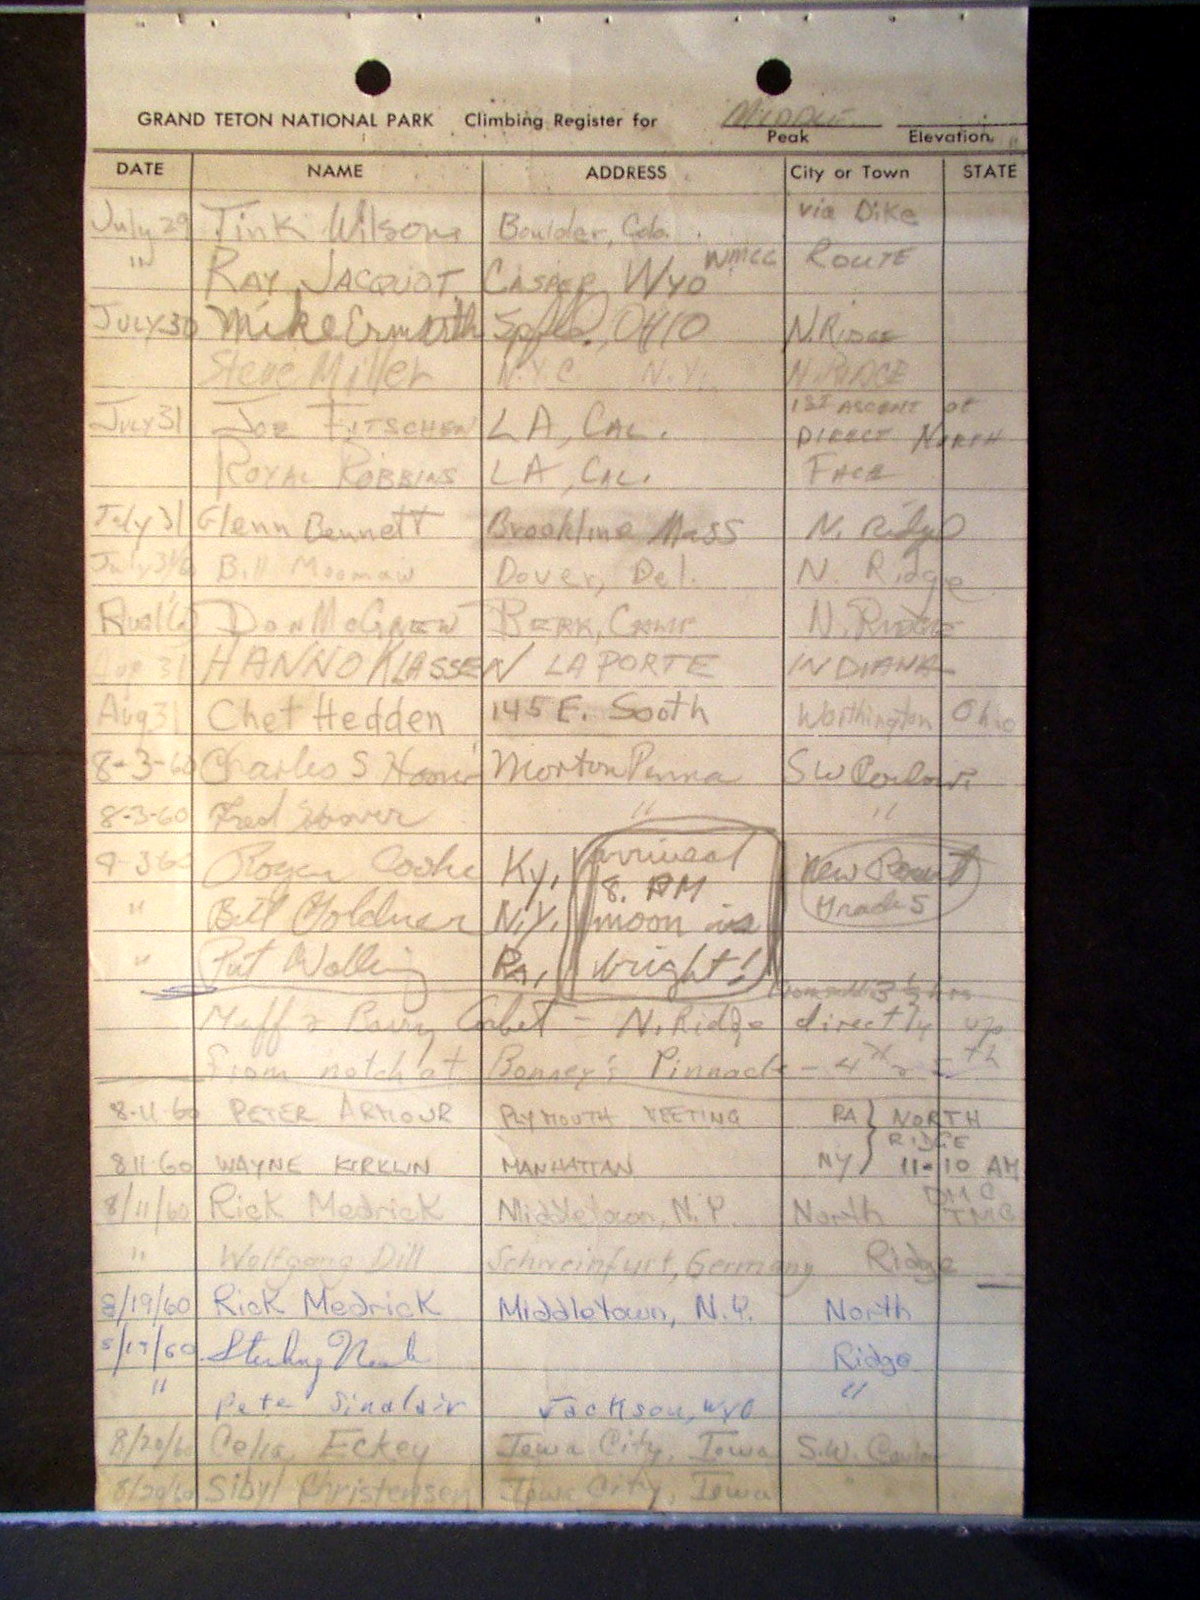 GRAND TETON NATIONAL PARK Climbing Register for MIDDLE
Peak Elevation
DATE NAME ADDRESS City or Town STATE
July 29 Tink Wilson Boulder, Colo. via Dike
" RAY JACQUOT CASPER WYO WMCC ROUTE
JULY 30 Mike Ermarth Spfld., OHIO N. RIDGE
Steve Miller N.Y.C. N.Y. N. RIDGE
JULY 31 JOE FITSCHEN LA, CAL. 1ST ASCENT OF
DIRECT NORTH
ROYAL ROBBINS LA, CAL. FACE
July 31 Glenn Bennett Brookline Mass N. Ridge
July 31 Bill Moomaw Dover, Del. N. Ridge
DON McGREW BERK, N. RIDGE
31 HANNO KLASSEN LA PORTE INDIANA
Aug 31 Chet Hedden 145 E. South Worthington Ohio
8-3-60 Charles S Morton Penna SW
8-3-60 Fred Hoover " "
60 Roger Ky, arrived New Rout
8. PM Grade 5
" Bill Goldner N.Y. moon is
" Put Pa, bright!
3 1/2 hrs
Muffy & Barry Corbet - N. Ridge directly up
from notch at Bonney's Pinnacle - 4th 5th
8-11-60 PETER ARMOUR PLYMOUTH MEETING PA } NORTH
RIDGE
8 11 60 WAYNE KIRKLIN MANHATTAN NY 11-10 AM
8/11/60 Rick Medrick Middletown, N.Y. North
" Wolfgang Dill Schweinfurt, Germany Ridge
8/19/60 Rick Medrick Middletown, N.Y. North
Sterling Neale Ridge
" Pete Sinclair Jackson, Wyo "
8/20/60 Celia Eckey Iowa City, Iowa S.W.
8/20/60 Sibyl Christensen Iowa City, Iowa "